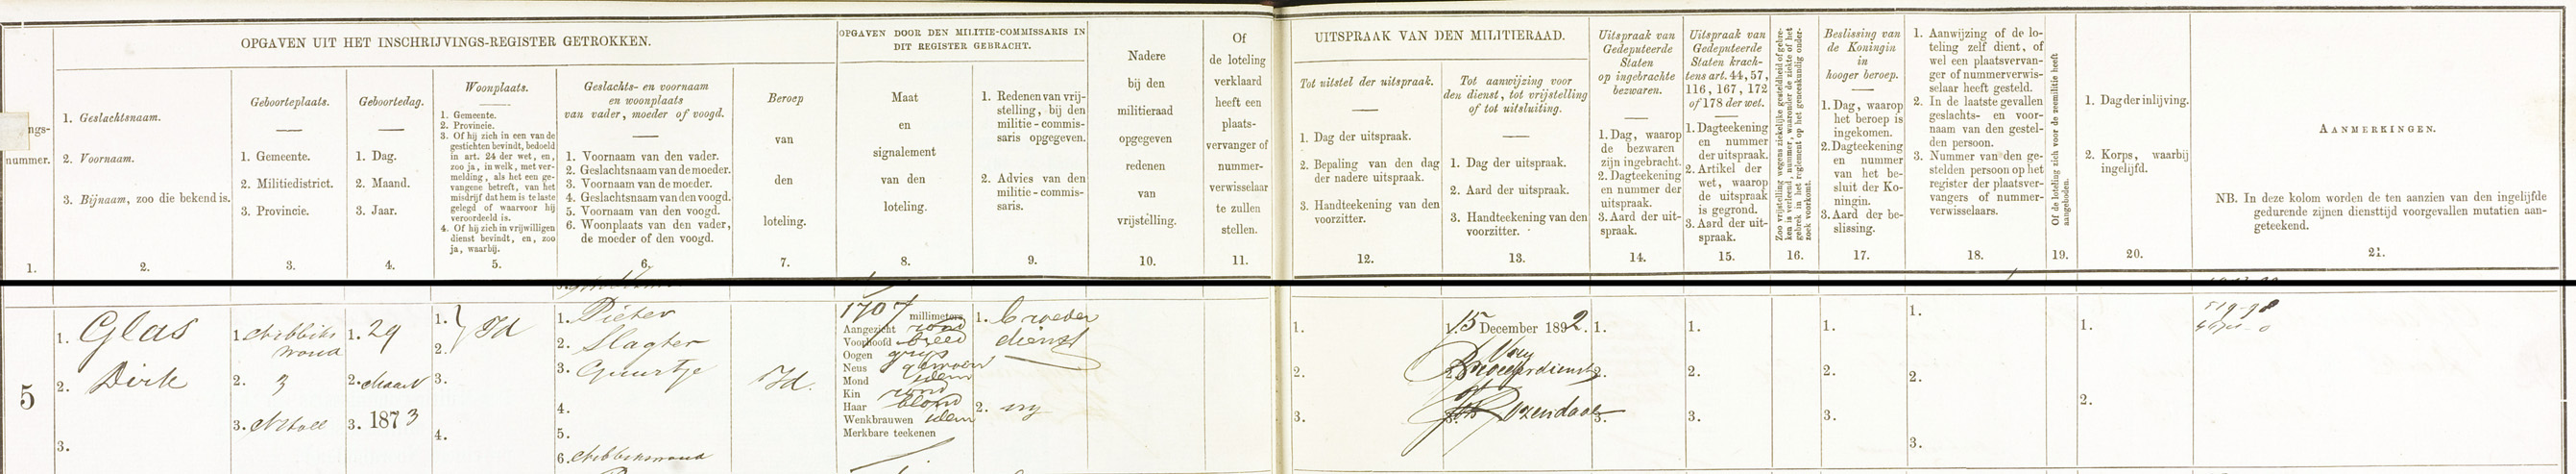 OPGAVEN UIT HET INSCHRIJVINGS-REGISTER GETROKKEN.
OPGAVEN DOOR DEN MILITIE-COMMISSARIS IN
DIT REGISTER GEBRACHT.
ngs-
nummer.
1.
1. Geslachtsnaam.
2. Voornaam.
3. Bijnaam, zoo die bekend is.
2.
Geboorteplaats.
1. Gemeente.
2. Militiedistrict.
3. Provincie.
3.
Geboortedag.
1. Dag.
2. Maand.
3. Jaar.
4.
Woonplaats.
1. Gemeente.
2. Provincie.
3. Of hij zich in een van de
gestichten bevindt, bedoeld
in art. 24 der wet, en,
zoo ja, in welk, met ver-
melding, als het een ge-
vangene betreft, van het
misdrijf dat hem is te laste
gelegd of waarvoor hij
veroordeeld is.
4. Of hij zich in vrijwilligen
dienst bevindt, en, zoo
ja, waarbij.
5.
Geslachts- en voornaam
en woonplaats
van vader, moeder of voogd.
1. Voornaam van den vader.
2. Geslachtsnaam van de moeder.
3. Voornaam van de moeder.
4. Geslachtsnaam van den voogd.
5. Voornaam van den voogd.
6. Woonplaats van den vader,
de moeder of den voogd.
6.
Beroep
van
den
loteling.
7.
Maat
en
signalement
van den
loteling.
8.
1. Redenen van vrij-
stelling, bij den
militie-commis-
saris opgegeven.
2. Advies van den
militie-commis-
saris.
9.
Nadere
bij den
militieraad
opgegeven
redenen
van
vrijstelling.
10.
Of
de loteling
verklaard
heeft een
plaats-
vervanger of
nummer-
verwisselaar
te zullen
stellen.
11.
UITSPRAAK VAN DEN MILITIERAAD.
Tot uitstel der uitspraak.
1. Dag der uitspraak.
2. Bepaling van den dag
der nadere uitspraak.
3. Handteekening van den
voorzitter.
12.
Tot aanwijzing voor
den dienst, tot vrijstelling
of tot uitsluiting.
1. Dag der uitspraak.
2. Aard der uitspraak.
3. Handteekening van den
voorzitter.
13.
Uitspraak van
Gedeputeerde
Staten
op ingebrachte
bezwaren.
1. Dag, waarop
de bezwaren
zijn ingebracht.
2. Dagteekening
en nummer der
uitspraak.
3. Aard der uit-
spraak.
14.
Uitspraak van
Gedeputeerde
Staten krach-
tens art. 44, 57,
116, 167, 172
of 178 der wet.
1. Dagteekening
en nummer
der uitspraak.
2. Artikel der
wet, waarop
de uitspraak
is gegrond.
3. Aard der uit-
spraak.
15.
Zoo vrijstelling wegens ziekelijke gesteldheid of gebre-
ken is verleend, nummer, waaronder de ziekte of het
gebrek in het reglement op het geneeskundig onder-
zoek voorkomt.
16.
Beslissing van
de Koningin
in
hooger beroep.
1. Dag, waarop
het beroep is
ingekomen.
2. Dagteekening
en nummer
van het be-
sluit der Ko-
ningin.
3. Aard der be-
slissing.
17.
1. Aanwijzing of de lo-
teling zelf dient, of
wel een plaatsvervan-
ger of nummerverwis-
selaar heeft gesteld.
2. In de laatste gevallen
geslachts- en voor-
naam van den gestel-
den persoon.
3. Nummer van den ge-
stelden persoon op het
register der plaatsver-
vangers of nummer-
verwisselaars.
18.
Of de loteling zich voor de zeemilitie heeft
aangeboden.
19.
1. Dag der inlijving.
2. Korps, waarbij
ingelijfd.
20.
AANMERKINGEN.
NB. In deze kolom worden de ten aanzien van den ingelijfde
gedurende zijnen diensttijd voorgevallen mutatien aan-
geteekend.
21.
5
1. Glas
2. Dirk
3.
1. Hibbiks
woud
2. 3
3. NHoll
1. 29
2. Maart
3. 1873
1. Id
2.
3.
4.
1. Pieter
2. Slagter
3. Guurtje
4.
5.
6. Hibbikswoud
Id.
1707 millimeters
Aangezicht rond
Voorhoofd breed
Oogen grijs
Neus gewoon
Mond idem
Kin rond
Haar blond
Wenkbrauwen idem
Merkbare teekenen
1. broeder
dienst
2. vrij
1.
2.
3.
1. 15 December 1892.
2. Vrij
Broederdienst
3. Rozendaal
1.
2.
3.
1.
2.
3.
1.
2.
3.
1.
2.
3.
1.
2.
519-98